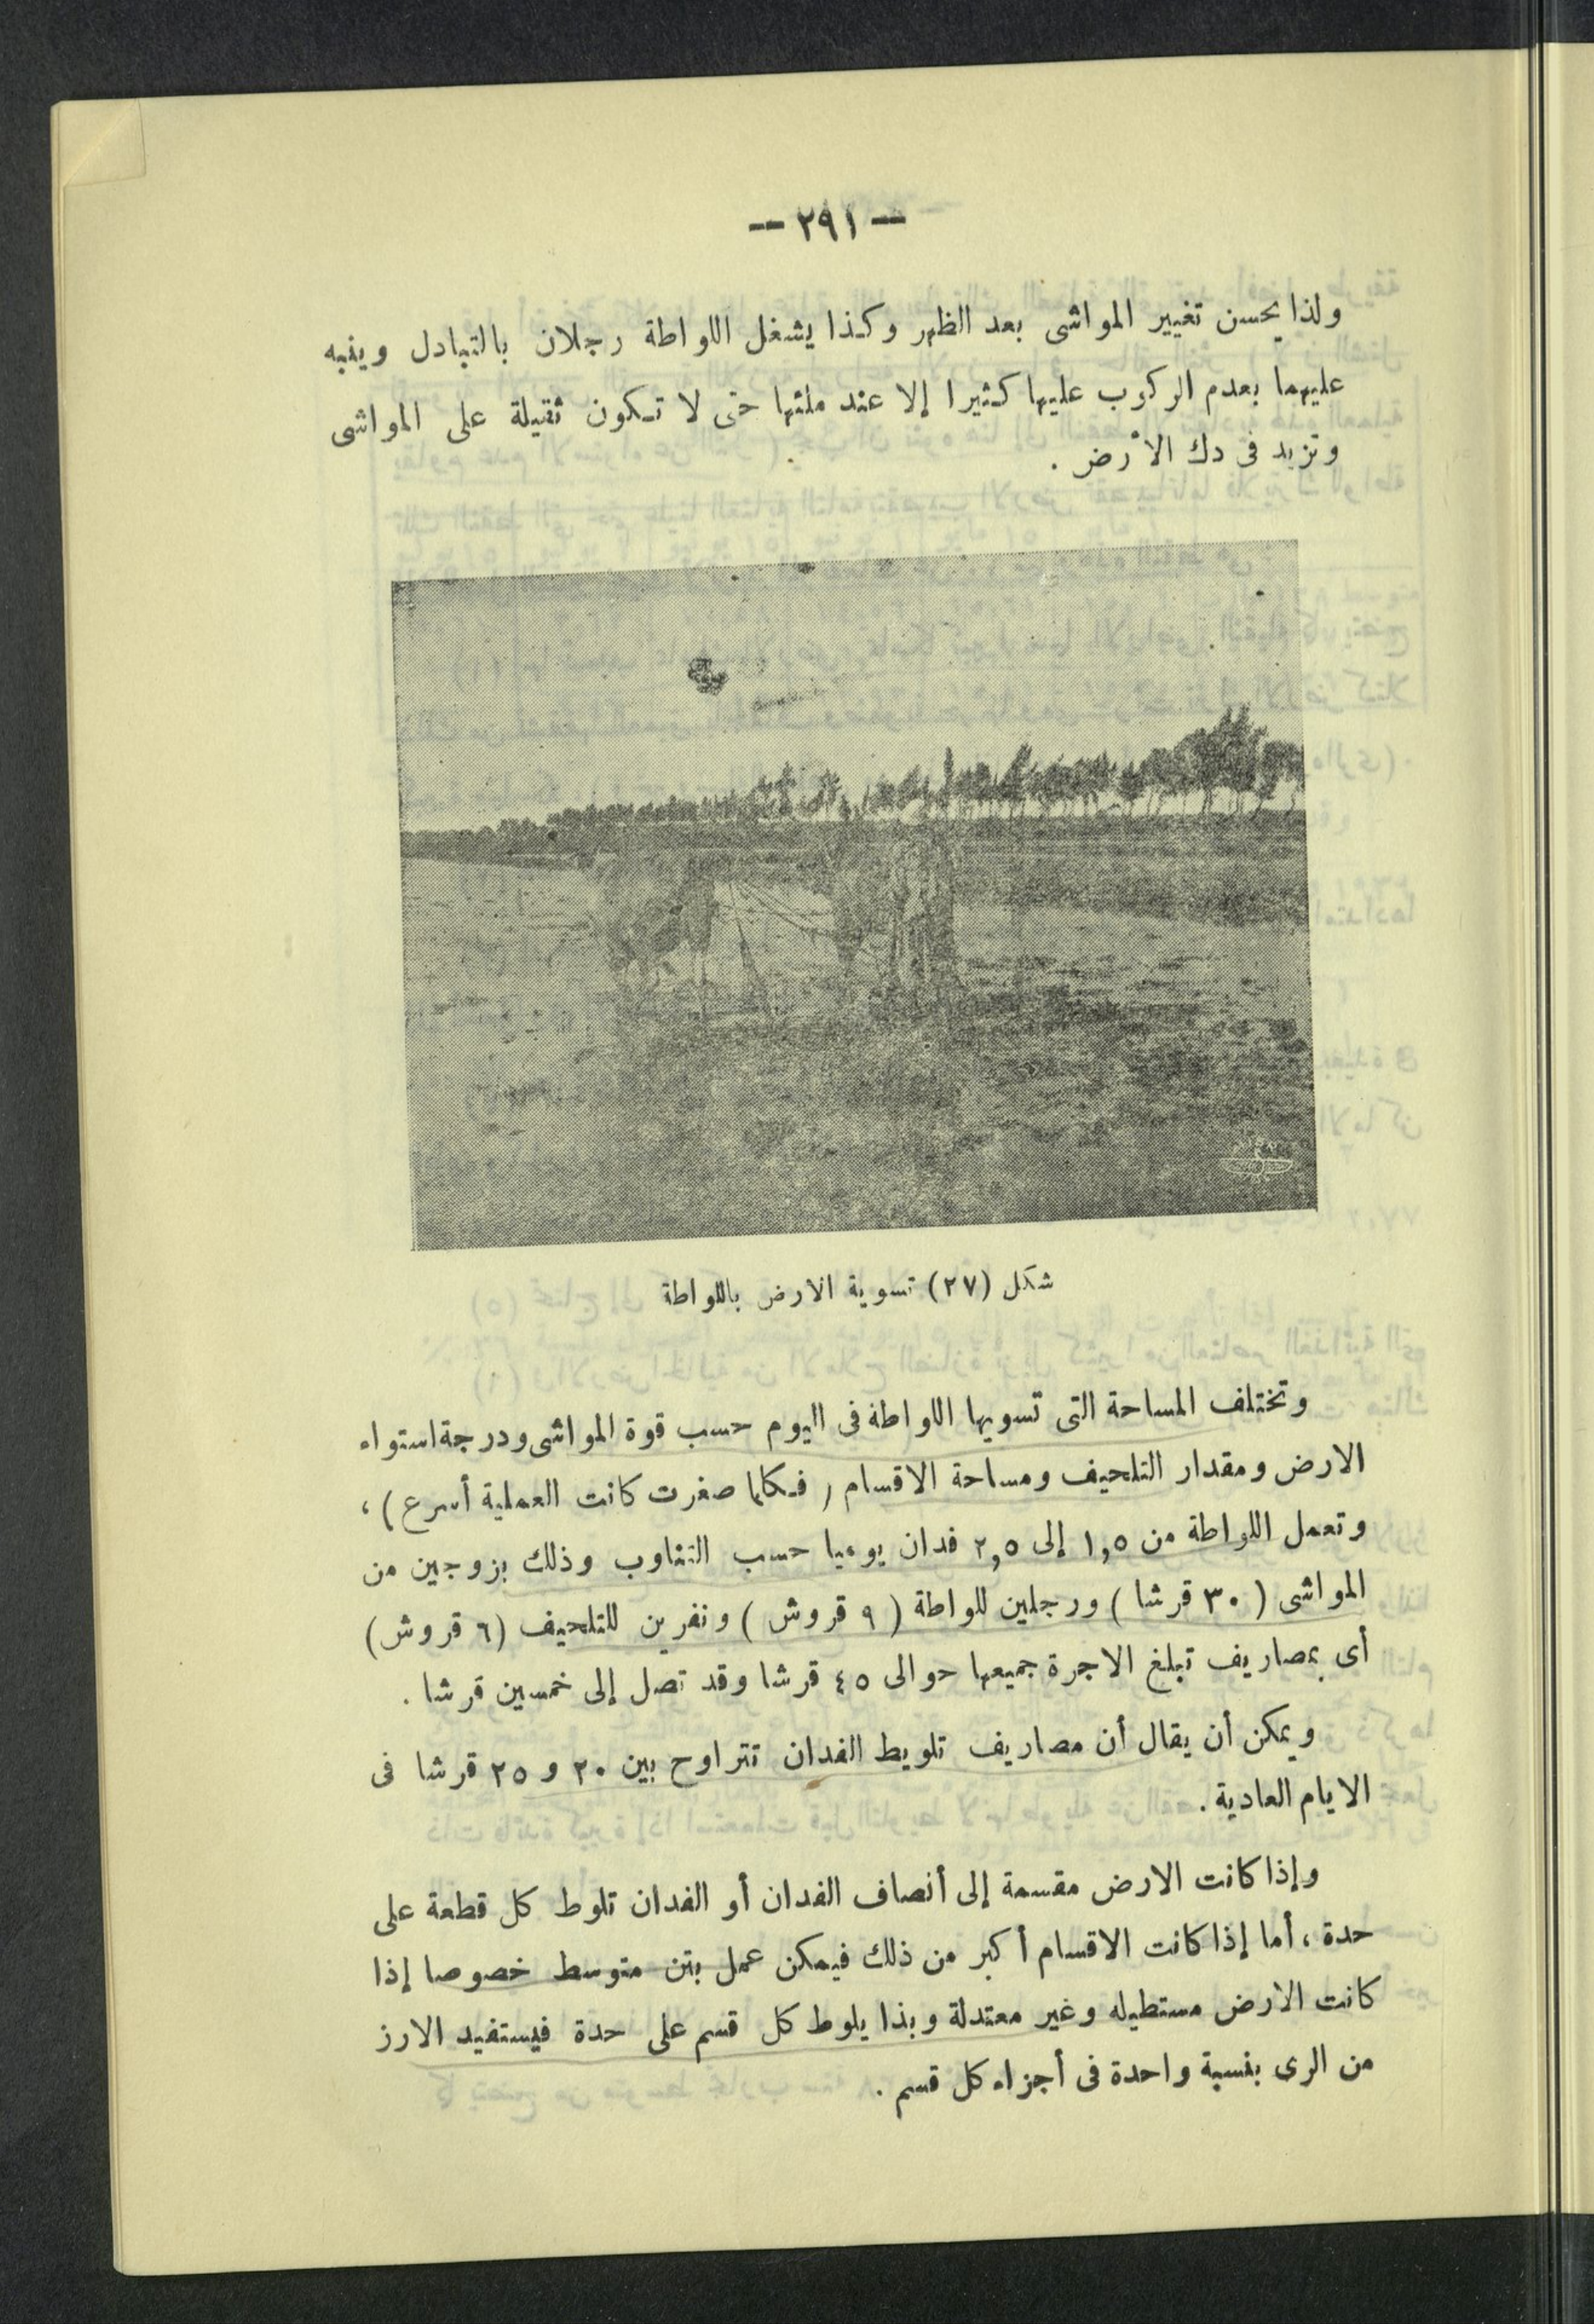 — ٢٩١ —
ولذا يحسن تغيير المواشى بعد الظهر وكذا يشغل اللواطة رجلان بالتبادل وينبه
عليهما بعدم الركوب عليها كثيرا إلا عند ملئها حتى لا تكون ثقيلة على المواشى
وتزيد فى دك الأرض .
شكل (٢٧) تسوية الارض باللواطة
وتختلف المساحة التى تسويها اللواطة فى اليوم حسب قوة المواشى ودرجة استواء
الارض ومقدار التلحيف ومساحة الاقسام ( فكلما صغرت كانت العملية أسرع ) ،
وتعمل اللواطة من ١,٥ إلى ٢,٥ فدان يوميا حسب التناوب وذلك بزوجين من
المواشى ( ٣٠ قرشا ) ورجلين للواطة ( ٩ قروش ) ونفرين للتلحيف (٦ قروش)
أى بمصاريف تبلغ الاجرة جميعها حوالى ٤٥ قرشا وقد تصل إلى خمسين قرشا .
ويمكن أن يقال أن مصاريف تلويط الفدان تتراوح بين ٢٠ و ٢٥ قرشا فى
الايام العادية .
وإذا كانت الارض مقسمة إلى أنصاف الفدان أو الفدان تلوط كل قطعة على
حدة ، أما إذا كانت الاقسام أكبر من ذلك فيمكن عمل بتن متوسط خصوصا إذا
كانت الارض مستطيله وغير معتدلة وبذا يلوط كل قسم على حدة فيستفيد الارز
من الرى بنسبة واحدة فى أجزاء كل قسم .